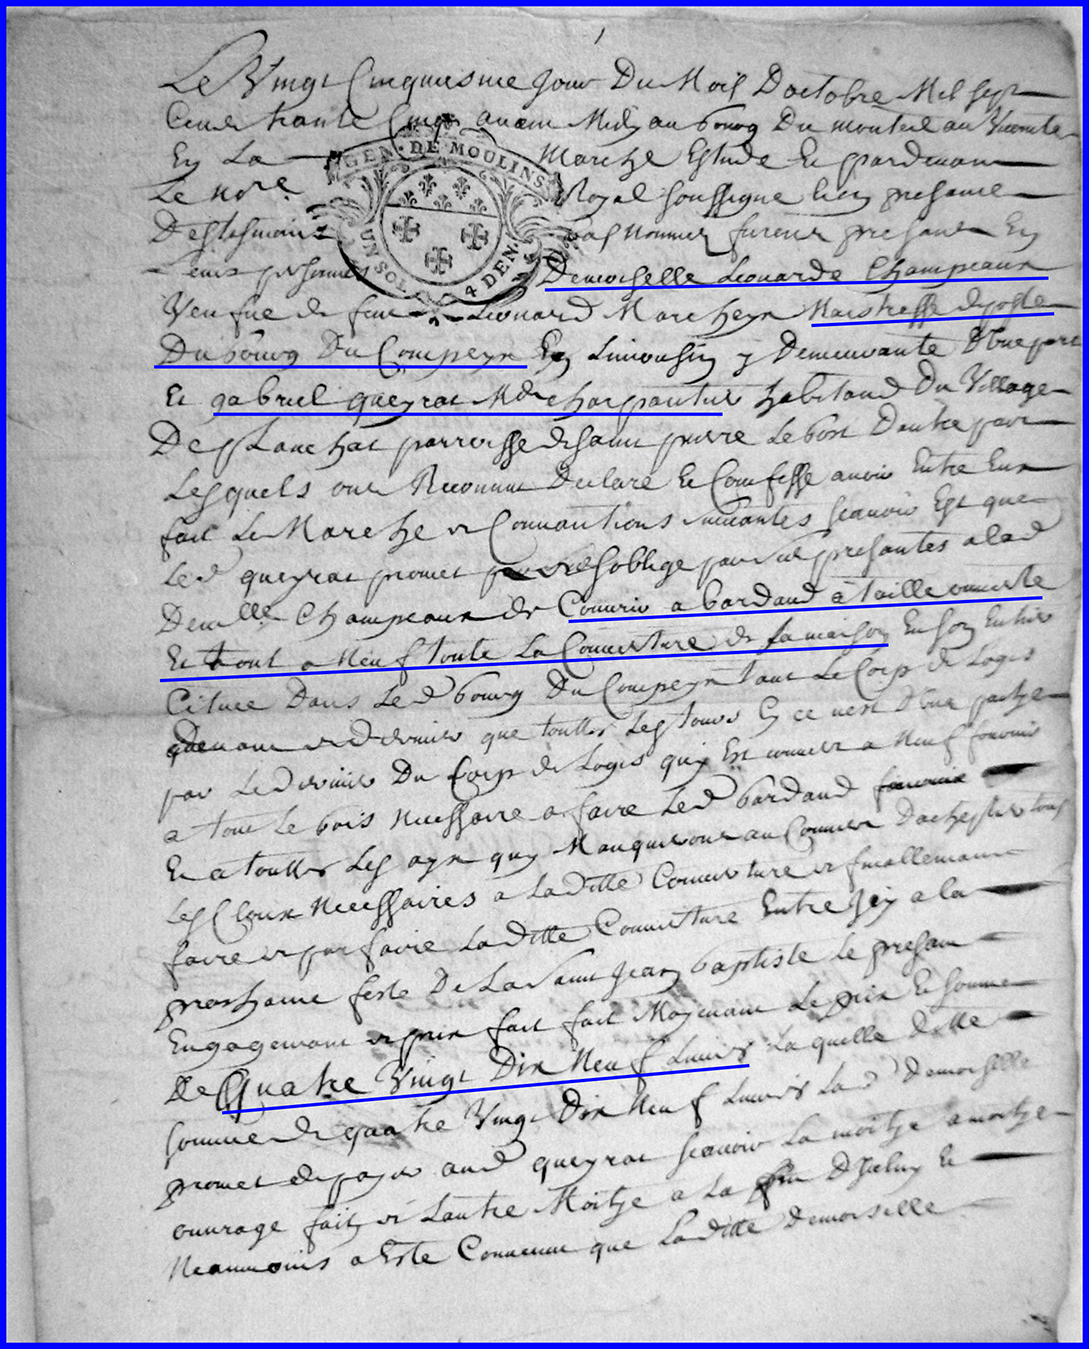 Le Vingt Cinquiesme Jour Du Mois Doctobre Mil sept
Cent trante Cinq avant Midy au bourg Du monteil au Vicomte
En La Marche Estude Et pardevant
Le nore Royal soussigne bien presante
GEN. DE MOULINS
UN SOL 4 DEN.
Des tesmoins bas nommes furent presant En
Leurs personnes Demoiselle Leonarde Champeaux
Veufue de feu Leonard Marcheyx Maistresse de poste
Du bourg Du Compeyx En Limousin y Demeurante D'une part
Et gabriel queyrat Md charpantier habitand Du Village
De planchat parroisse de saint pierre Le bost Dautre part
Lesquels ont Reconnu Declare Et Confesse avoir Entre Eux
fait Le Marche et Convantions suivantes scavoir Est que
Led queyrat promet soblige par ses presantes a lad
Demlle Champeaux de Couvrir a bardaud à taille ouverte
Et tout a Neuf toute La Couverture de sa maison En son Entier
Cituee Dans Led bourg Du Compeyx tant Le Corp de Logis
devant et dernier que touttes Les tours Sy ce nest D'une partye
par Le dernier Du Corp de Logis quy Est couvert a Neuf fournir
a tout Le bois Necessaire a faire Led bardaud
Et a touttes Les ays quy Manqueront au Couvert Dachepter tous
Les Cloux Necessaires a Laditte Couverture et finallemant
faire et parfaire Laditte Couverture Entre Jcy a la
prochaine feste De La Saint Jean baptiste Le presant
Engagemant et prix fait fait Moyenant Le prix Et somme
de Quatre Vingt Dix Neuf Livres La quelle ditte
somme de quatre Vingt Dix Neuf Livres Lad Demoiselle
promet de payer aud queyrat scavoir La moitye a moitye
ouvrage fait et Lautre Moitye a La fin Dyceluy Et
Neanmoins a Este Convenu que Laditte Demoiselle